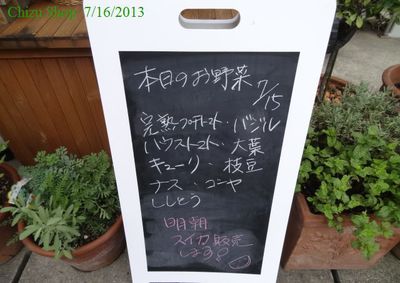 Chizu Shop 7/16/2013
本日のお野菜
7/15
完熟プチトマト・バジル
ハウストマト・大葉
キューリ・枝豆
ナス・ゴーヤ
ししとう
明朝
スイカ販売
します!